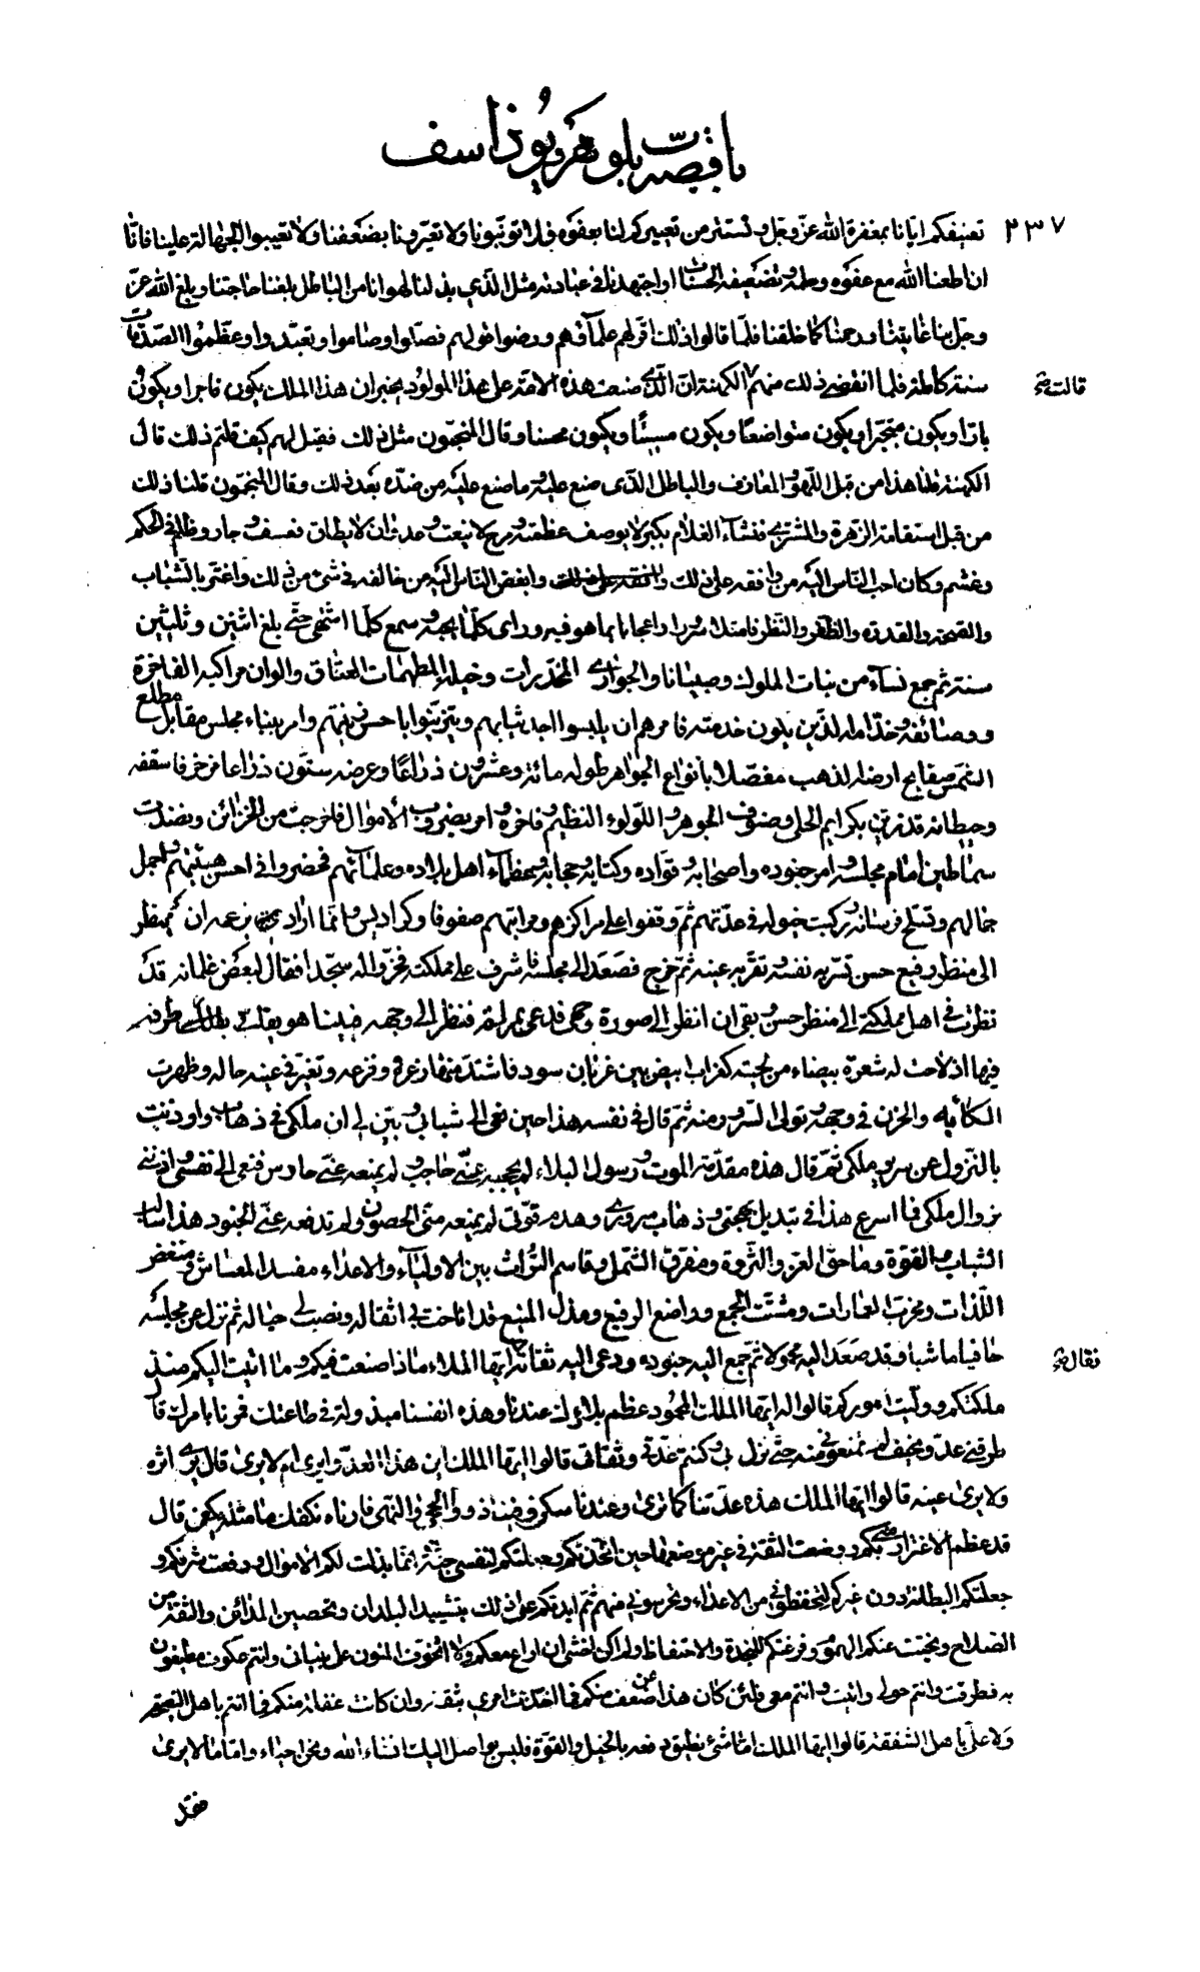 باقصة بلوهر ويوذاسف
٢٣٧ تعنيفكم ايّانا بمغفرة الله عزّ وجل ونستتر من تعييركم لنا بعفوه فلا تؤنّبونا ولا تعيّرونا بضعفنا ولا تعيبوا الجهالة علينا فانّا
ان اطعنا الله مع عفوه وحلمه وتضعيفه الحسنات او اجتهدنا في عبادته مثل الذي بذلنا لهوانا من الباطل بلغنا حاجتنا وبلغ الله عزّ
وجل بنا غايتنا ورحمنا كما خلقنا فلمّا قالوا ذلك اقرّ لهم علمآؤهم ورضوا قولهم فصلّوا وصاموا وتعبّدوا وعظّموا الصّدقات
سنة كاملة فلما انقضى ذلك منهم الكهنة انّ الذي صنعت هذه الامّة على هذا المولود يخبر ان هذا الملك يكون فاجرا ويكون
قالت
بارّا ويكون متجبّرا ويكون متواضعًا ويكون مسيئًا ويكون محسنا وقال المنجّمون مثل ذلك فقيل لهم كيف قلتم ذلك قال
الكهنة قلنا هذا من قبل اللّهو والمعازف والباطل الذي صنع عليه وما صنع عليه من ضدّه بعد ذلك وقال المنجّمون قلنا ذلك
من قبل استقامة الزهرة والمشتري فنشأ الغلام بكبر لا يوصف عظمته ومرح لا ينعت وعدوان لا يطاق فعسف وجار وظلم في الحكم
وغشم وكان احب النّاس اليه من وافقه على ذلك وابغض النّاس اليه من خالفه في شئ من ذلك واغترّ بالشّباب
والصّحة والقدرة والظّفر والنّظر فامتلأ سرورا واعجابا بما هو فيه وراى كلّما يحب وسمع كلّما اشتهى حتّى بلغ اثنين وثلثين
سنة ثم جمع نسآء من بنات الملوك وصبيانا والجواري المخدّرات وخيله المطهمات العتاق والوان مراكبه الفاخرة
ووصائفه وخدّامه الّذين يكون خدمته فامرهم ان يلبسوا اجد ثيابهم ويتزيّنوا باحسن زينتهم وامر ببناء مجلس مقابل مطلع
الشّمس صفايح ارضه الذهب مفصّلا بانواع الجواهر طوله مائة وعشرون ذراعًا وعرضه ستّون ذراعا مزخرفا سقفه
وحيطانه قد زيّن بكرايم الحلى وصنوف الجوهر واللؤلؤ النظيم وفاخره وامر بضروب الأموال فاخرجت من الخزائن ونضدت
سماطين امام مجلسه وامر جنوده واصحابه وقوّاده وكتّابه وحجابه وعظمآء اهل بلاده وعلمآئهم فحضروا في احسن هيئتهم واجمل
جمالهم وتسلّح فرسانه وركبت خيوله في عدّتهم ثمّ وقفوا على مراكزهم ومراتبهم صفوفا وكراديس وانّما اراد بزعمه ان ينظر
الى منظر رفيع حسن تسرّ به نفسه وتقرّ به عينه ثمّ خرج فصعد الى مجلسه فاشرف على مملكته فخرّوا له سجّدا فقال لبعض غلمانه قد
نظرت في اهل مملكتي الى منظر حسن وبقى ان انظر الى صورة وجهي فدعى بمرآة فنظر الى وجهه فبينا هو يقلّب طرفه
فيها اذ لاحت له شعرة بيضاء من لحيته كغراب ابيض بين غربان سود فاشتدّ منها ذعره وفزعه وتغيّر في عينه حاله وظهرت
الكابة والحزن في وجهه وتولى السّرور منه ثمّ قال في نفسه هذا حين نعى الى شبابي وبيّن لي ان ملكي في ذهاب واوذنت
بالنّزول عن سرير ملكي ثمّ قال هذه مقدّمة الموت ورسول البلاء لم يحجبه عنّي حاجب ولم يمنعه عنّي حارس فنعى الى نفسي واذن لي
بزوال ملكي فما اسرع هذا في تبديل بهجتي وذهاب سروري وهدم قوّتي لم يمنعه منّى الحصون ولم تدفعه عنّي الجنود هذا سالب
الشّباب والقوّة وماحق العزّ والثّروة ومفرق الشّمل وقاسم التّراث بين الاوليآء والاعداء مفسد المعاش ومنغّص
اللّذّات ومخرّب العمارات ومشتّت الجمع وواضع الرفيع ومذل المنيع قد اناخت بي اثقاله ونصب لي حباله ثم نزل عن مجلسه
حافيا ماشيا وقد صعد اليه محمولا ثمّ جمع اليه جنوده ودعى اليه ثقاته ايّها الملاء ماذا صنعت فيكم وما اتيت اليكم منذ
فقال
ملكتكم ووليت اموركم قالوا له ايّها الملك المحمود عظم بلاؤك عندنا وهذه انفسنا مبذولة في طاعتك فمرنا بامرك قال
طرقني عدوّ مخيف لم تمنعوني منه حتّى نزل بي وكنتم عدّتي وثقاتي قالوا ايّها الملك اين هذا العدوّ ايرى ام لا يرى قال يرى اثره
ولا يرى عينه قالوا ايّها الملك هذه عدّتنا كما ترى وعندنا سكن وفينا ذوو الحجى والنّهى فارناه نكفك ما مثله يكفى قال
قد عظم الاغترار منّي بكم ووضعت الثّقة في غير موضعها حين اتّخذتكم وجعلتكم لنفسي جنّة وانّما بذلت لكم الاموال ورفعت شرفكم و
جعلتكم البطانة دون غيركم لتحفظوني من الاعداء وتحرسوني منهم ثمّ ايدتكم على ذلك بتشييد البلدان وتحصين المدائن والثّقة من
السّلاح ونحّيت عنكم الهموم وفرغتكم للنّجدة والاحتفاظ ولم اكن اخشى ان اراع معكم ولا اتخوّف المنون على بنياني وانتم عكوف مطيفون
به فطرقت وانتم حولي واتيت وانتم معي فلئن كان هذا ضعف منكم فما اخذت امري بثقة وان كانت غفلة منكم فما انتم باهل النّصيحة
ولا على باهل الشّفقة قالوا ايّها الملك امّا شئ نطيق دفعه بالخيل والقوّة فليس بواصل اليك انشاء الله ونحن احياء وامّا ما لا يرى
فقد